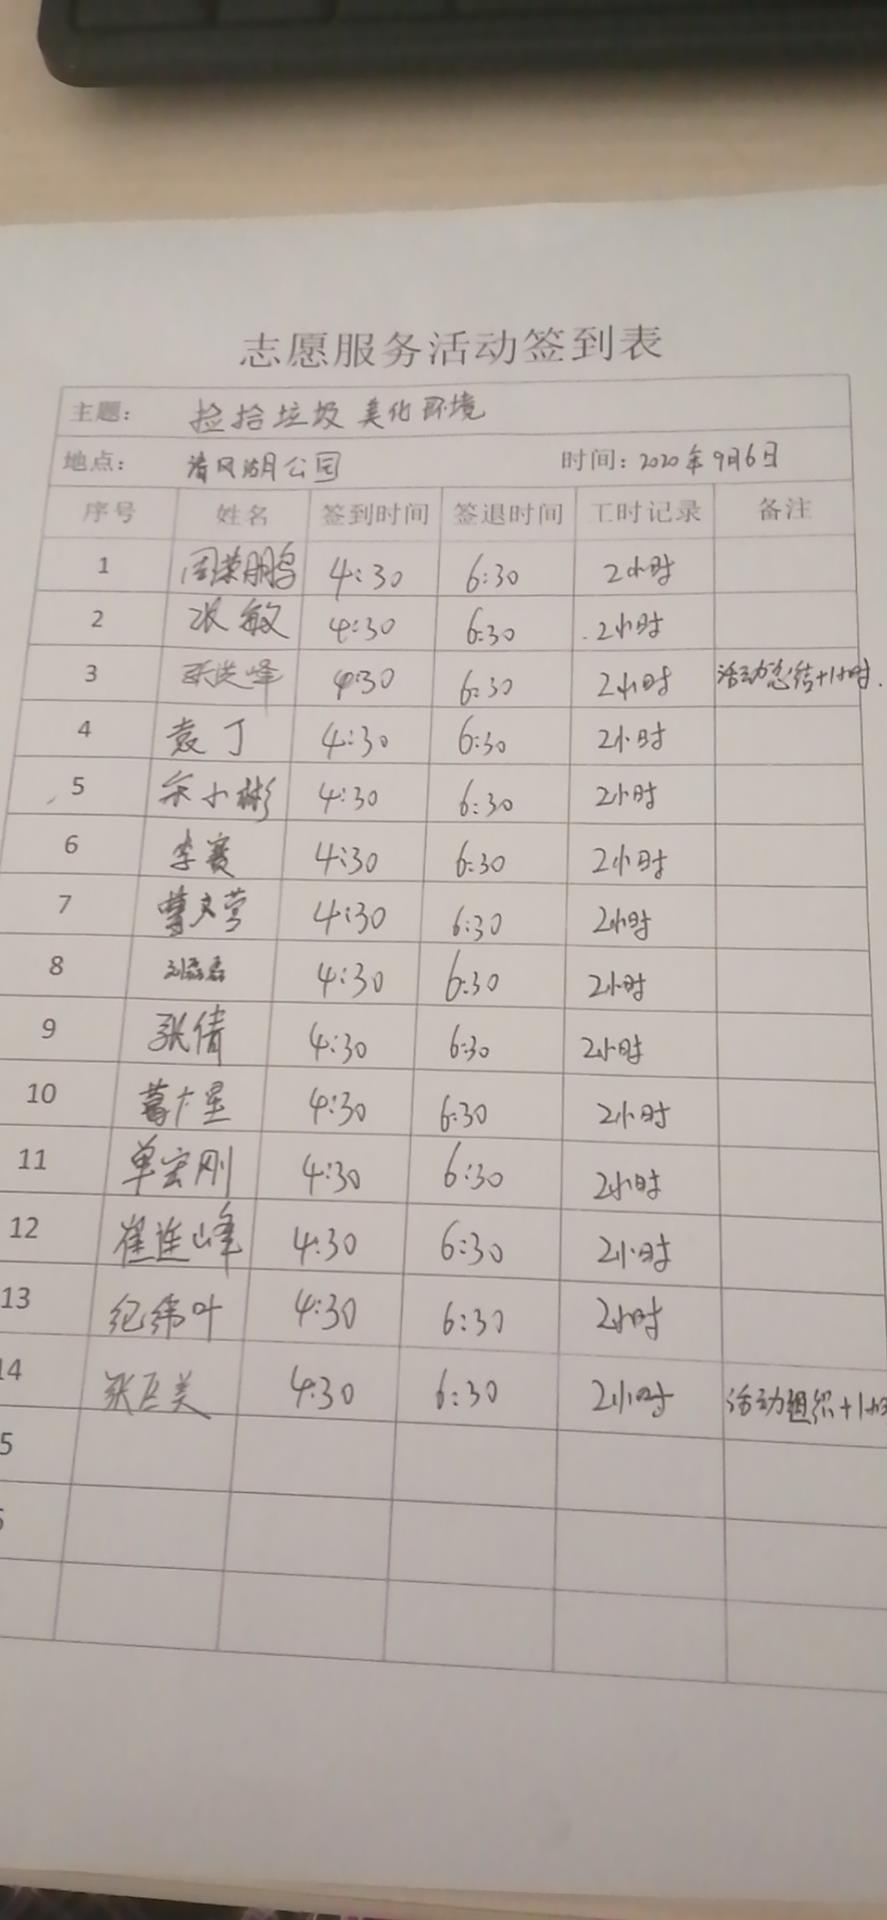 志愿服务活动签到表
主题： 捡拾垃圾 美化环境
地点： 清风湖公园 时间：2020年9月6日
序号 姓名 签到时间 签退时间 工时记录 备注
1 周荣鹏 4:30 6:30 2小时
2 张敏 4:30 6:30 2小时
3 张洪峰 4:30 6:30 2小时 活动总结+1小时.
4 袁丁 4:30 6:30 2小时
5 宋小彬 4:30 6:30 2小时
6 李赛 4:30 6:30 2小时
7 曹文莹 4:30 6:30 2小时
8 刘磊磊 4:30 6:30 2小时
9 张倩 4:30 6:30 2小时
10 葛大星 4:30 6:30 2小时
11 单宏刚 4:30 6:30 2小时
12 崔连峰 4:30 6:30 2小时
13 纪纬叶 4:30 6:30 2小时
14 张巨美 4:30 6:30 2小时 活动组织+1小时
5